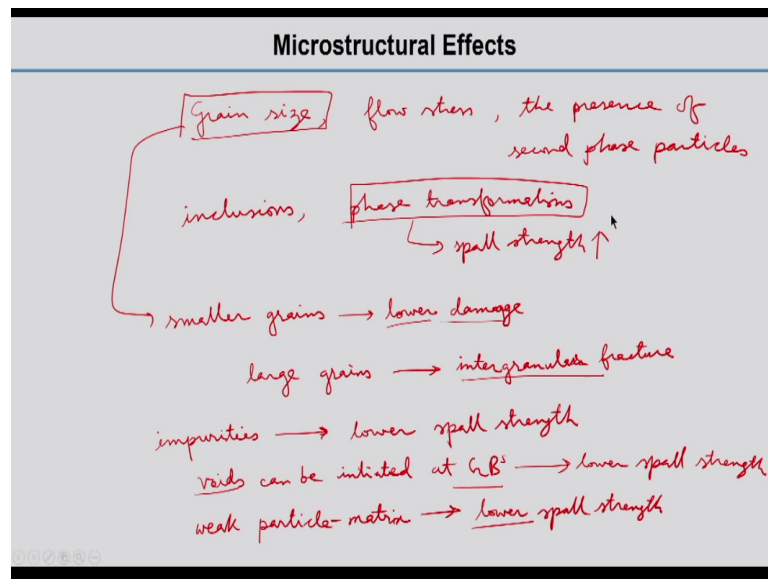 Microstructural Effects
Grain size, flow stress, the presence of
second phase particles
inclusions, phase transformations
→ spall strength ↑
smaller grains → lower damage
large grains → intergranular fracture
impurities → lower spall strength
voids can be intiated at GBs → lower spall strength
weak particle-matrix → lower spall strength